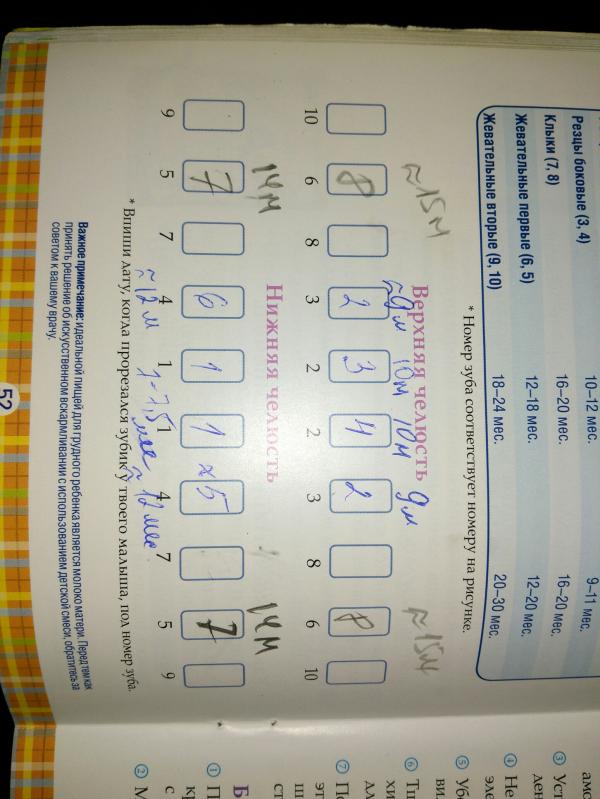 10–12 мес. 9–11 мес.
Резцы боковые (3, 4)
Клыки (7, 8) 16–20 мес. 16–20 мес.
Жевательные первые (6, 5) 12–18 мес. 12–20 мес.
Жевательные вторые (9, 10) 18–24 мес. 20–30 мес.
* Номер зуба соответствует номеру на рисунке.
Верхняя челюсть
≈15м ≈9м 10м 10м 9м ≈15м
8 2 3 4 2 8
10 6 8 3 2 2 3 8 6 10
Нижняя челюсть
14м 14м
7 6 1 1 ×5 7
9 5 7 4 1 1 4 7 5 9
≈12м 7-7,5 мес ≈12 мес
* Впиши дату, когда прорезался зубик у твоего малыша, под номер зуба.
Важное примечание: идеальной пищей для грудного ребенка является молоко матери. Перед тем как
принять решение об искусственном вскармливании с использованием детской смеси, обратитесь за
советом к вашему врачу.
52
3 Уст
4 Не
5
6
7 По
Б
1
2